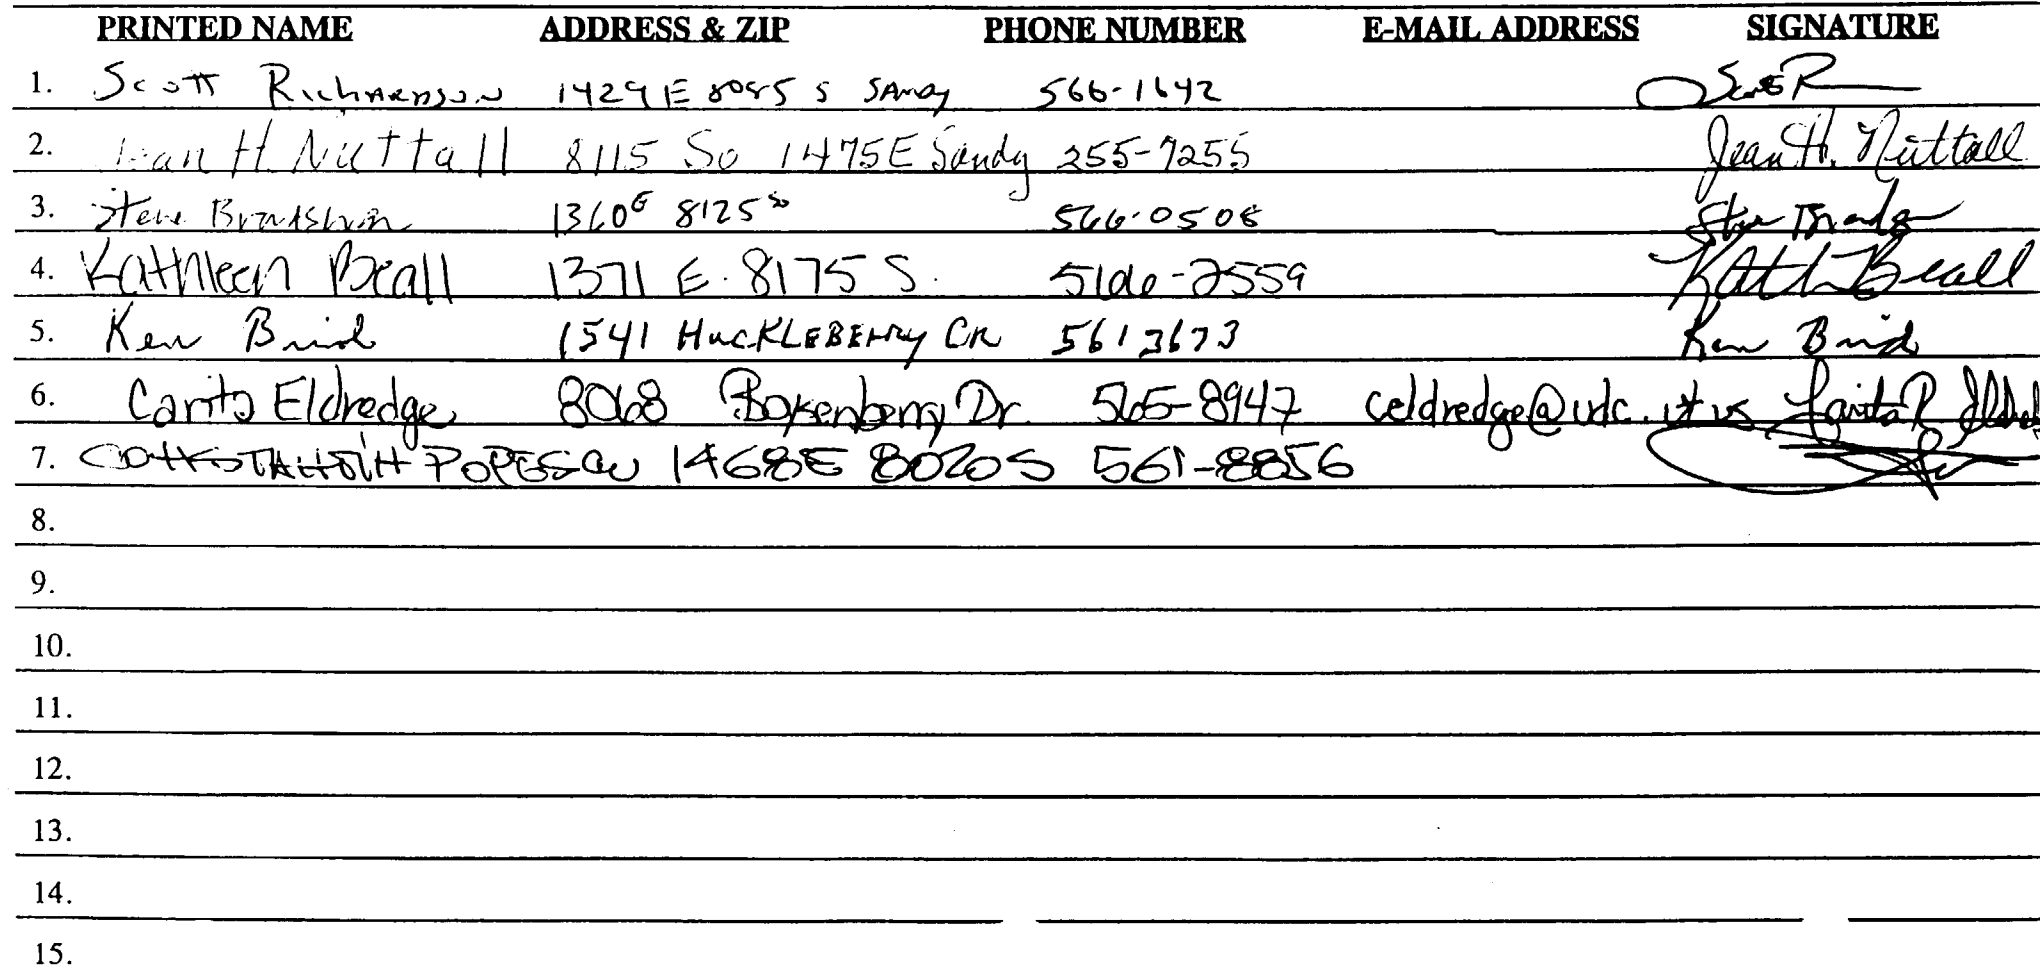 PRINTED NAME ADDRESS & ZIP PHONE NUMBER E-MAIL ADDRESS SIGNATURE
1. Scott Richardson 1429 E 8085 S SANDY 566-1642 Scott R
2. Jean H. Nuttall 8115 So 1475E Sandy 255-7255 Jean H. Nuttall
3. Steve Bradshaw 1360 E 8125 So 566-0508 Steve
4. Kathleen Beall 1371 E. 8175 S. 566-2559 Kath Beall
5. Ken 1541 HUCKLEBERRY CR 561 3673 Ken
6. Carita Eldredge 8068 Boysenberry Dr. 565-8947 celdredge@udc.ut us Carita R
7. POPESCU 1468E 8020S 561-8856
8.
9.
10.
11.
12.
13.
14.
15.